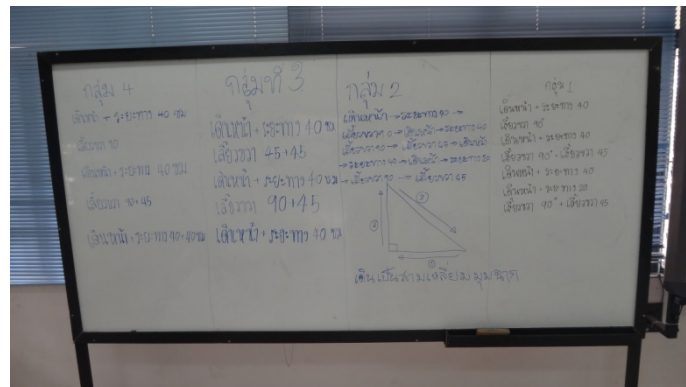 กลุ่ม 4
เดินหน้า + ระยะทาง 40 ซม
เลี้ยวขวา 90
เดินหน้า + ระยะทาง 40 ซม
เลี้ยวขวา 90+45
เดินหน้า + ระยะทาง 40+40 ซม
กลุ่มที่ 3
เดินหน้า + ระยะทาง 40 ซม
เลี้ยวขวา 45+45
เดินหน้า + ระยะทาง 40 ซม
เลี้ยวขวา 90+45
เดินหน้า + ระยะทาง 40 ซม
กลุ่ม 2
เดินหน้า → ระยะทาง 40 →
เลี้ยวขวา 90 → เดินหน้า → ระยะทาง 40
เลี้ยวขวา 90 → เลี้ยวขวา 45 → เดินหน้า
→ ระยะทาง 40 → เดินหน้า → ระยะทาง 20
→ เลี้ยวขวา 90 → เลี้ยวขวา 45
② ③
①
เดินเป็นสามเหลี่ยมมุมฉาก
กลุ่ม 1
เดินหน้า + ระยะทาง 40
เลี้ยวขวา 90°
เดินหน้า + ระยะทาง 40
เลี้ยวขวา 90° + เลี้ยวขวา 45
เดินหน้า + ระยะทาง 40
เดินหน้า + ระยะทาง 20
เลี้ยวขวา 90° + เลี้ยวขวา 45